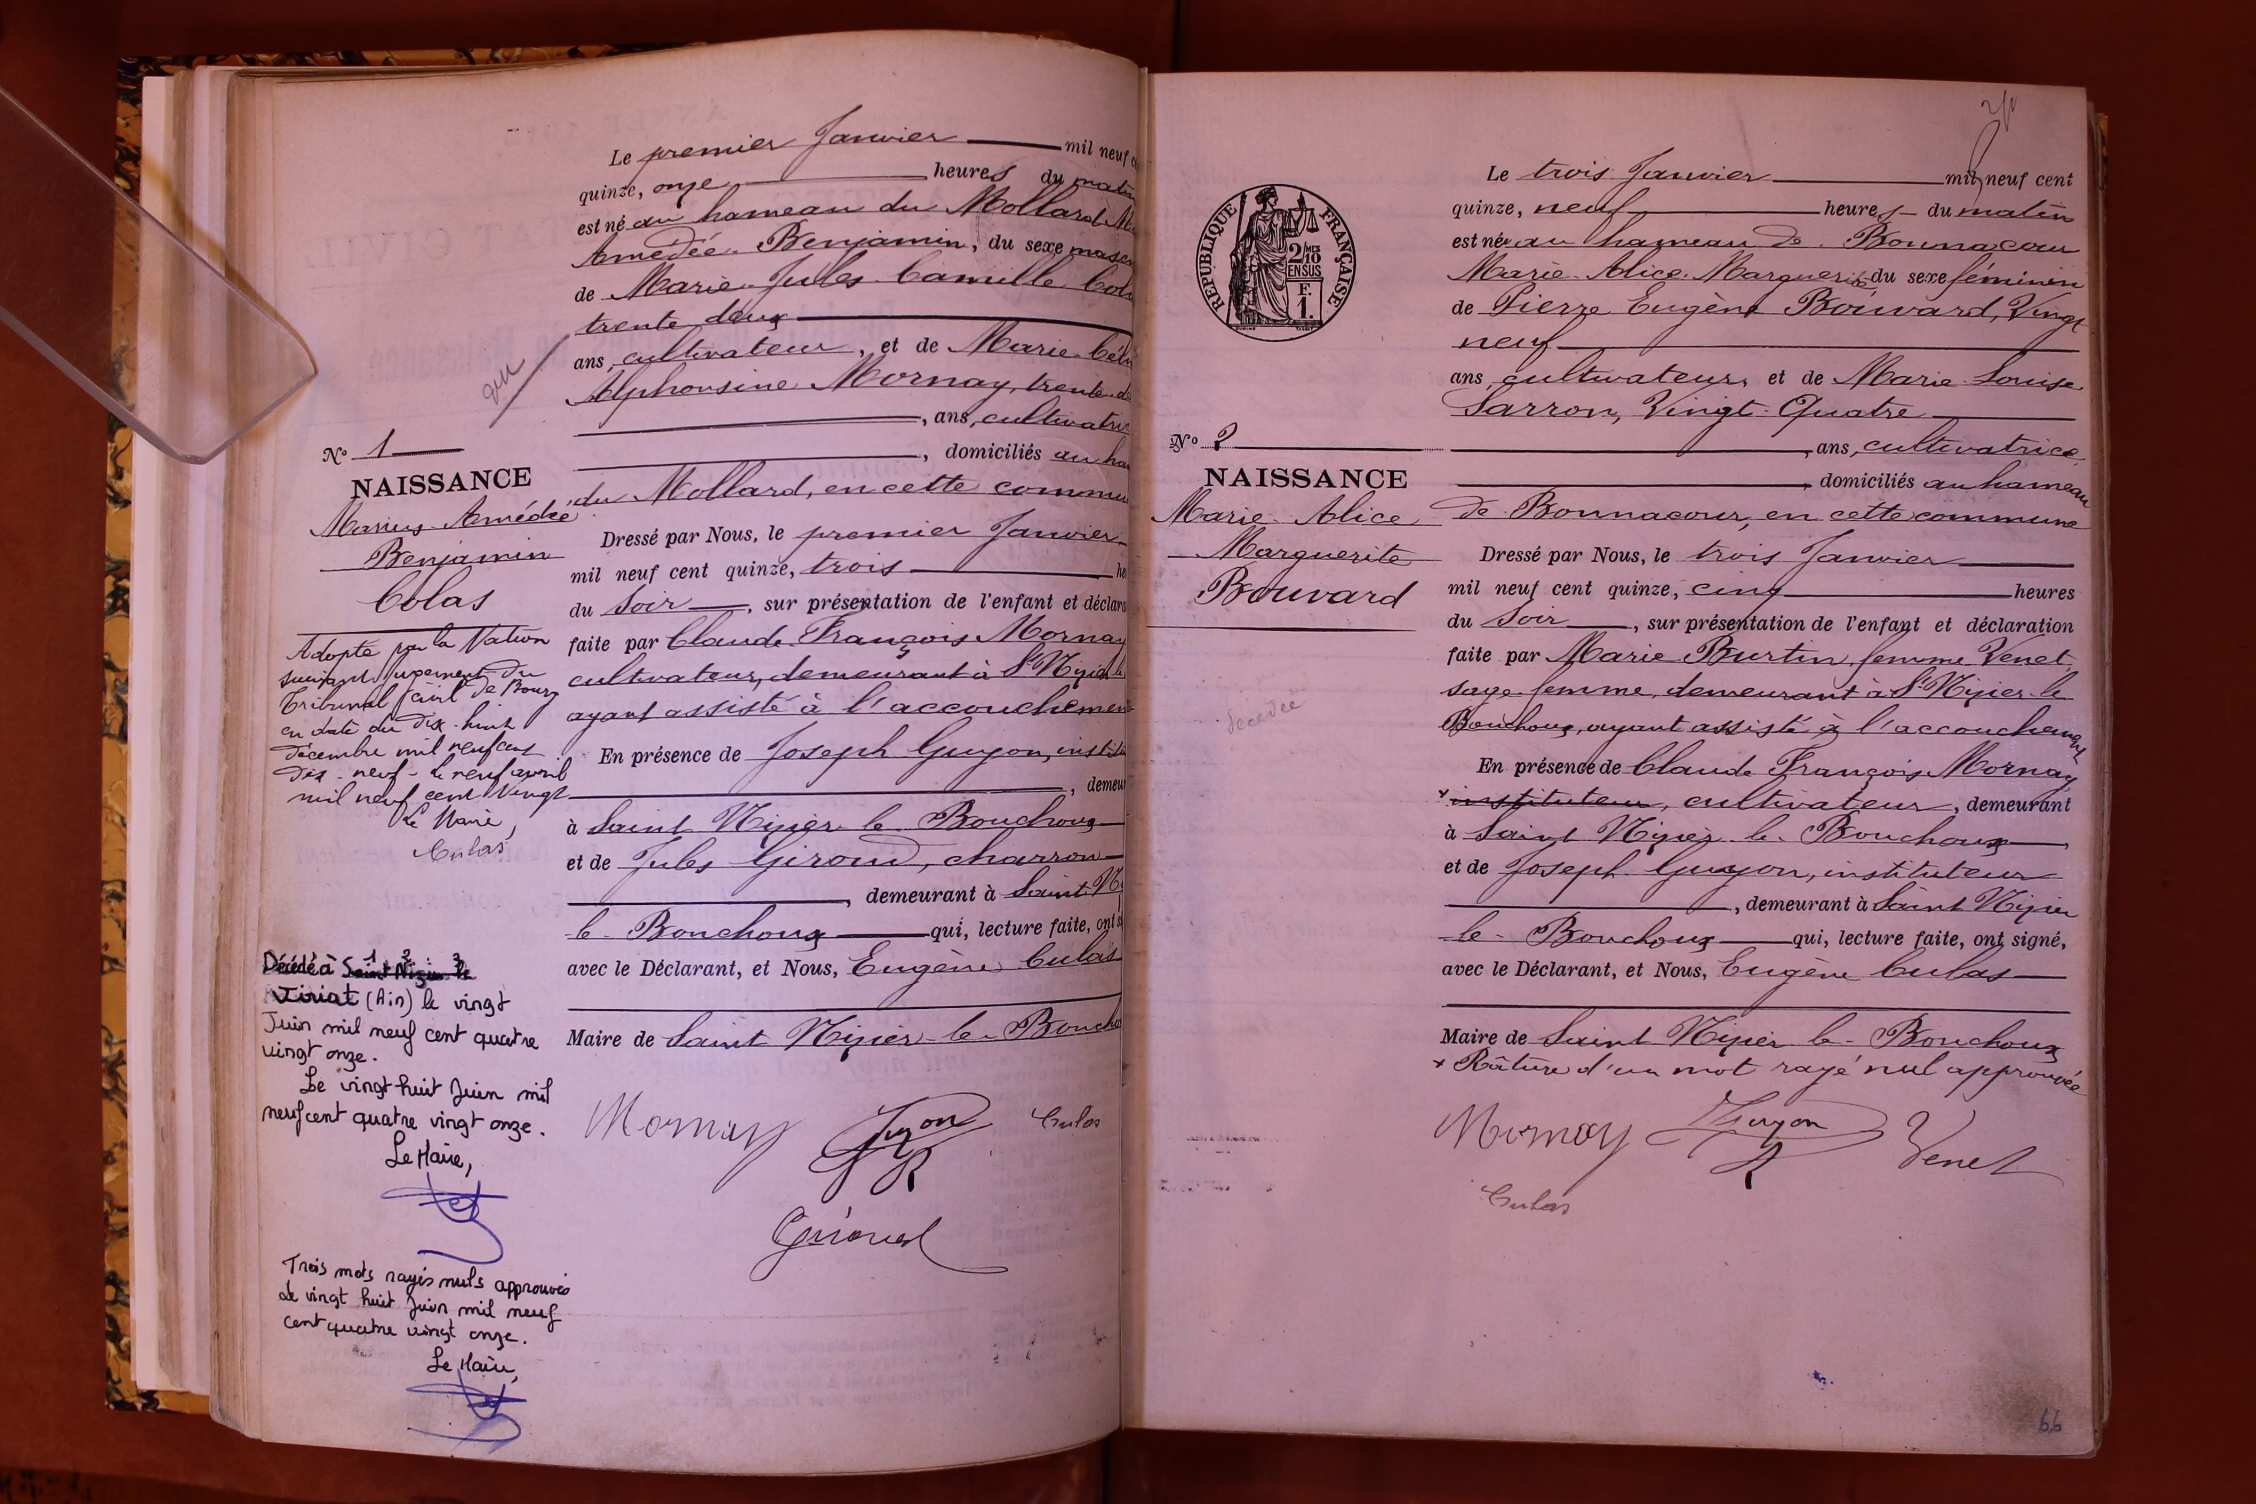 Le premier Janvier mil neuf
quinze, onze heures du matin
est né au hameau du Mollard
Amédée Benjamin, du sexe
de Marie Jules Camille
trente deux
ans, cultivateur, et de Marie
Alphonsine Mornay, trente
, ans, cultivatri
, domiciliés au ha
du Mollard, en cette commu
vu
N° 1
NAISSANCE
Marius Amédée
Benjamin
Colas
Adopté par la Nation
suivant jugement du
Tribunal Civil de Bourg
en date du dix-huit
décembre mil neuf cent
dix-neuf - le neuf avril
mil neuf cent vingt
Le Maire,
Culas
Décédé à Saint Nizier le
Viriat (Ain) le vingt
Juin mil neuf cent quatre
vingt onze.
Le vingt huit Juin mil
neuf cent quatre vingt onze.
Le Maire,
Trois mots rayés nuls approuvés
Le vingt huit Juin mil neuf
cent quatre vingt onze.
Le Maire,
Dressé par Nous, le premier Janvier
mil neuf cent quinze, trois he
du soir, sur présentation de l'enfant et déclara
faite par Claude François Mornay
cultivateur, demeurant à St Nizier le
ayant assisté à l'accouchement
En présence de Joseph Guyon, institu
, demeu
à Saint Nizier le Bouchoux
et de Jules Giroud, charron
, demeurant à Saint Ni
le Bouchoux qui, lecture faite, ont s
avec le Déclarant, et Nous, Eugène Culas
Maire de Saint Nizier le Boucho
Mornay Guyon Culas
Giroud
RÉPUBLIQUE FRANÇAISE
2/10
EN SUS
F.
1.
Le trois Janvier mil neuf cent
quinze, neuf heures du matin
est née au hameau de Bonnacour
Marie Alice Marguerite du sexe féminin
de Pierre Eugène Bouvard, Vingt
neuf
ans, cultivateur, et de Marie Louise
Sarron, Vingt Quatre
ans, cultivatrice,
domiciliés au hameau
de Bonnacour, en cette commune
N° 2
NAISSANCE
Marie Alice
Marguerite
Bouvard
décédée
Dressé par Nous, le trois Janvier
mil neuf cent quinze, cinq heures
du Soir, sur présentation de l'enfant et déclaration
faite par Marie Burtin femme Venet,
sage femme, demeurant à St Nizier le
Bouchoux, ayant assisté à l'accouchement
En présence de Claude François Mornay
x instituteur, cultivateur, demeurant
à Saint Nizier le Bouchoux,
et de Joseph Guyon, instituteur
, demeurant à Saint Nizier
le Bouchoux qui, lecture faite, ont signé,
avec le Déclarant, et Nous, Eugène Culas
Maire de Saint Nizier le Bouchoux
x Râture d'un mot rayé nul approuvée
Mornay Guyon Venet
Culas
66